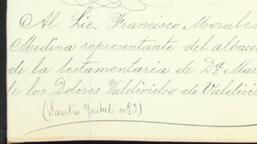 Al Lic. Francisco Morales
Medina representante del albacea
de la testamentaria de Dª Mar
de los Dolores Valdivielso de Valdivi
(Santa Ysabel nº 3)